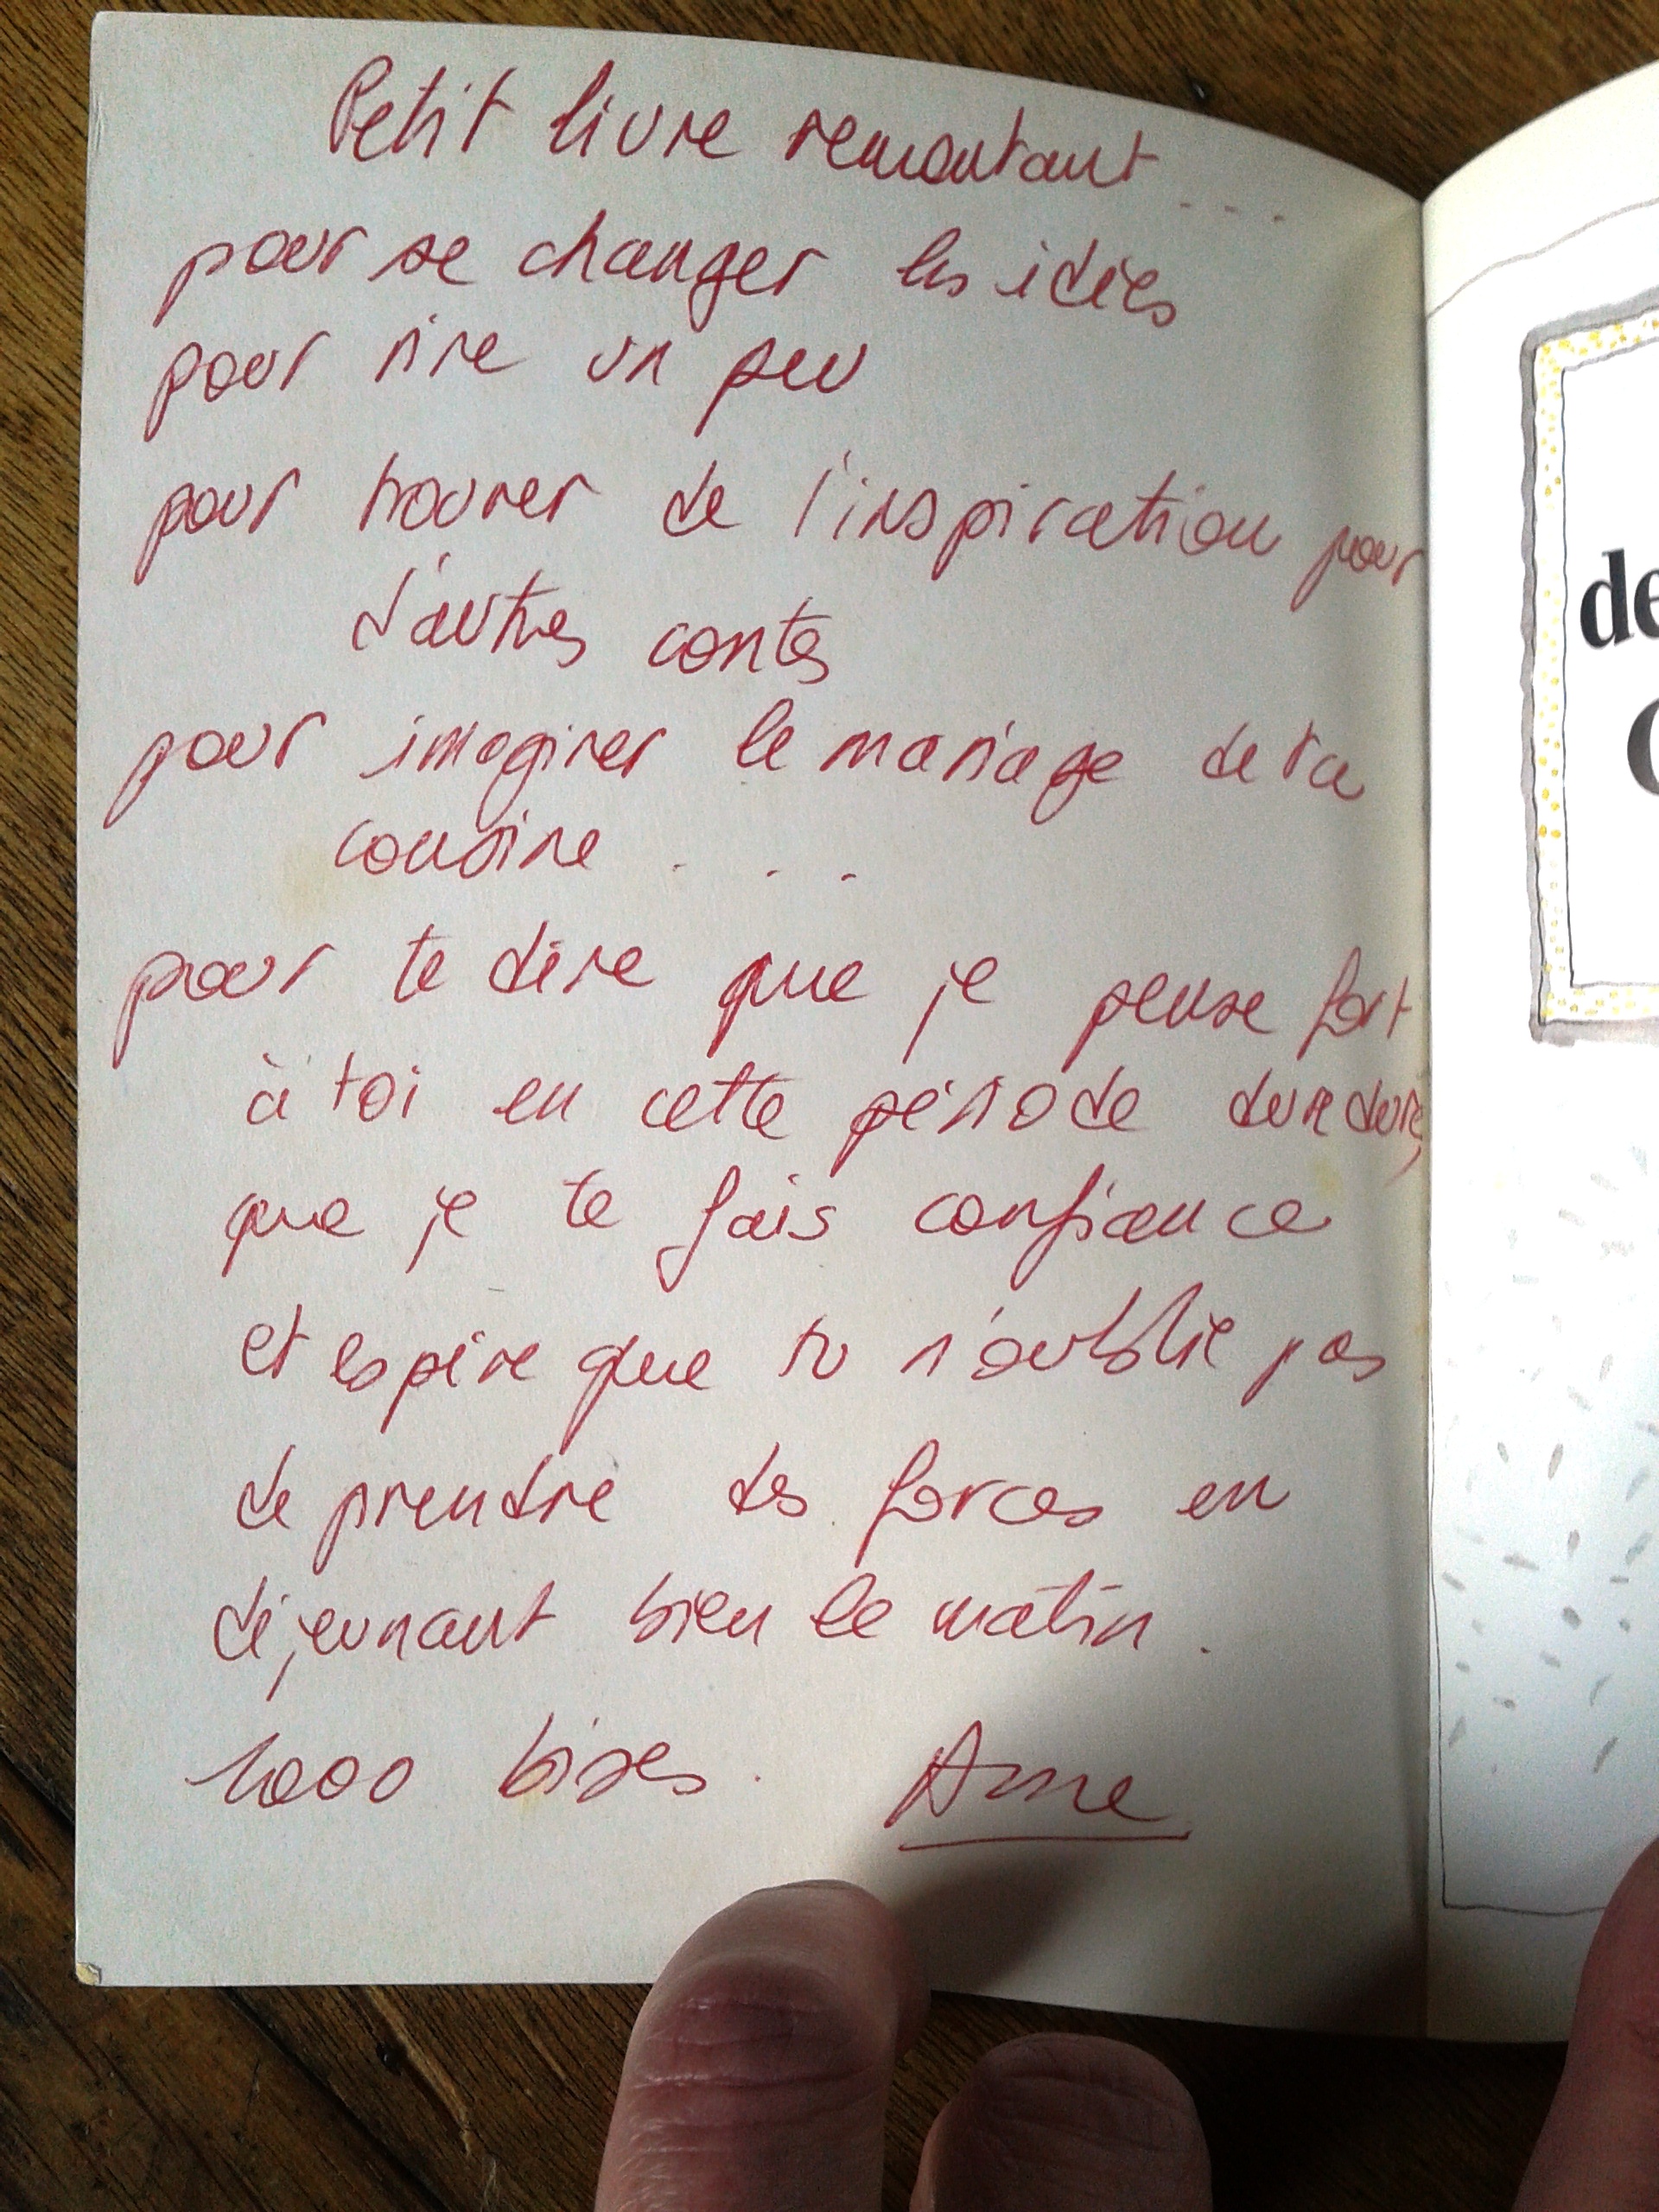 Petit livre remontant ...
pour se changer les idées
pour rire un peu
pour trouver de l'inspiration pour
d'autres contes
pour imaginer le mariage de ta
cousine ...
pour te dire que je pense fort
à toi en cette période dure dure,
que je te fais confiance
et espère que tu n'oublie pas
de prendre des forces en
déjeunant bien le matin.
1000 bises. Anne
de